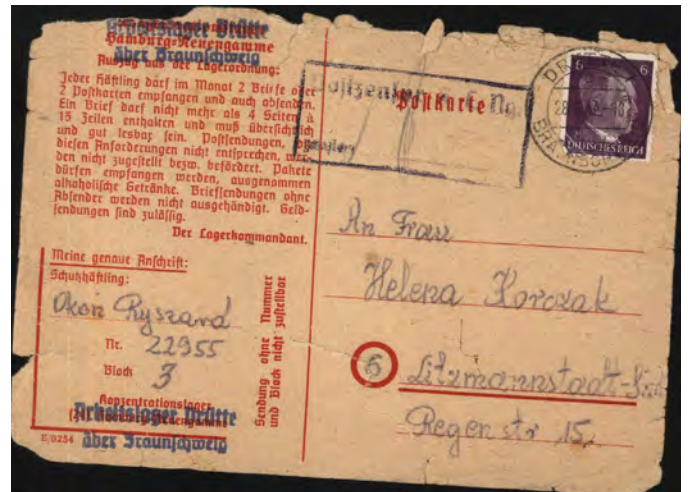 Arbeitslager Drütte
Hamburg-Neuengamme
über Braunschweig
Auszug aus der Lagerordnung:
Jeder Häftling darf im Monat 2 Briefe oder
2 Postkarten empfangen und auch absenden.
Ein Brief darf nicht mehr als 4 Seiten à
15 Zeilen enthalten und muß übersichtlich
und gut lesbar sein. Postsendungen, die
diesen Anforderungen nicht entsprechen, wer-
den nicht zugestellt bezw. befördert. Pakete
dürfen empfangen werden, ausgenommen
alkoholische Getränke. Briefsendungen ohne
Absender werden nicht ausgehändigt. Geld-
sendungen sind zulässig.
Der Lagerkommandant.
Meine genaue Anschrift:
Schutzhäftling:
Okoń Ryszard
Nr. 22955
Block 3
Konzentrationslager
Arbeitslager Drütte
über Braunschweig
E/0254
Sendung ohne Nummer
und Block nicht zustellbar
Postkarte
6 6
DEUTSCHES REICH
An Frau
Helena Korczak
6
Litzmannstadt-
Regenstr 15.